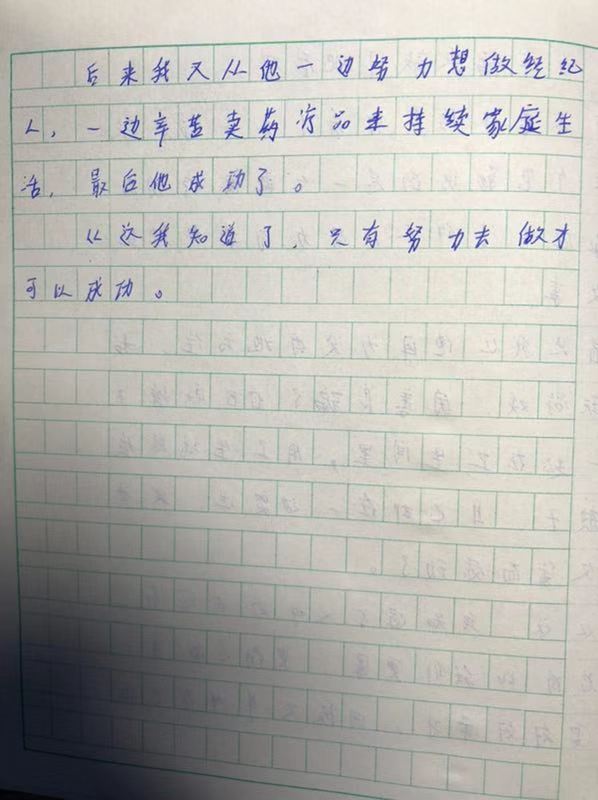 后来我又从他一边努力想做经纪
人,一边辛苦卖药疗品来持续家庭生
活,最后他成功了。
从这我知道了,只有努力去做才
可以成功。